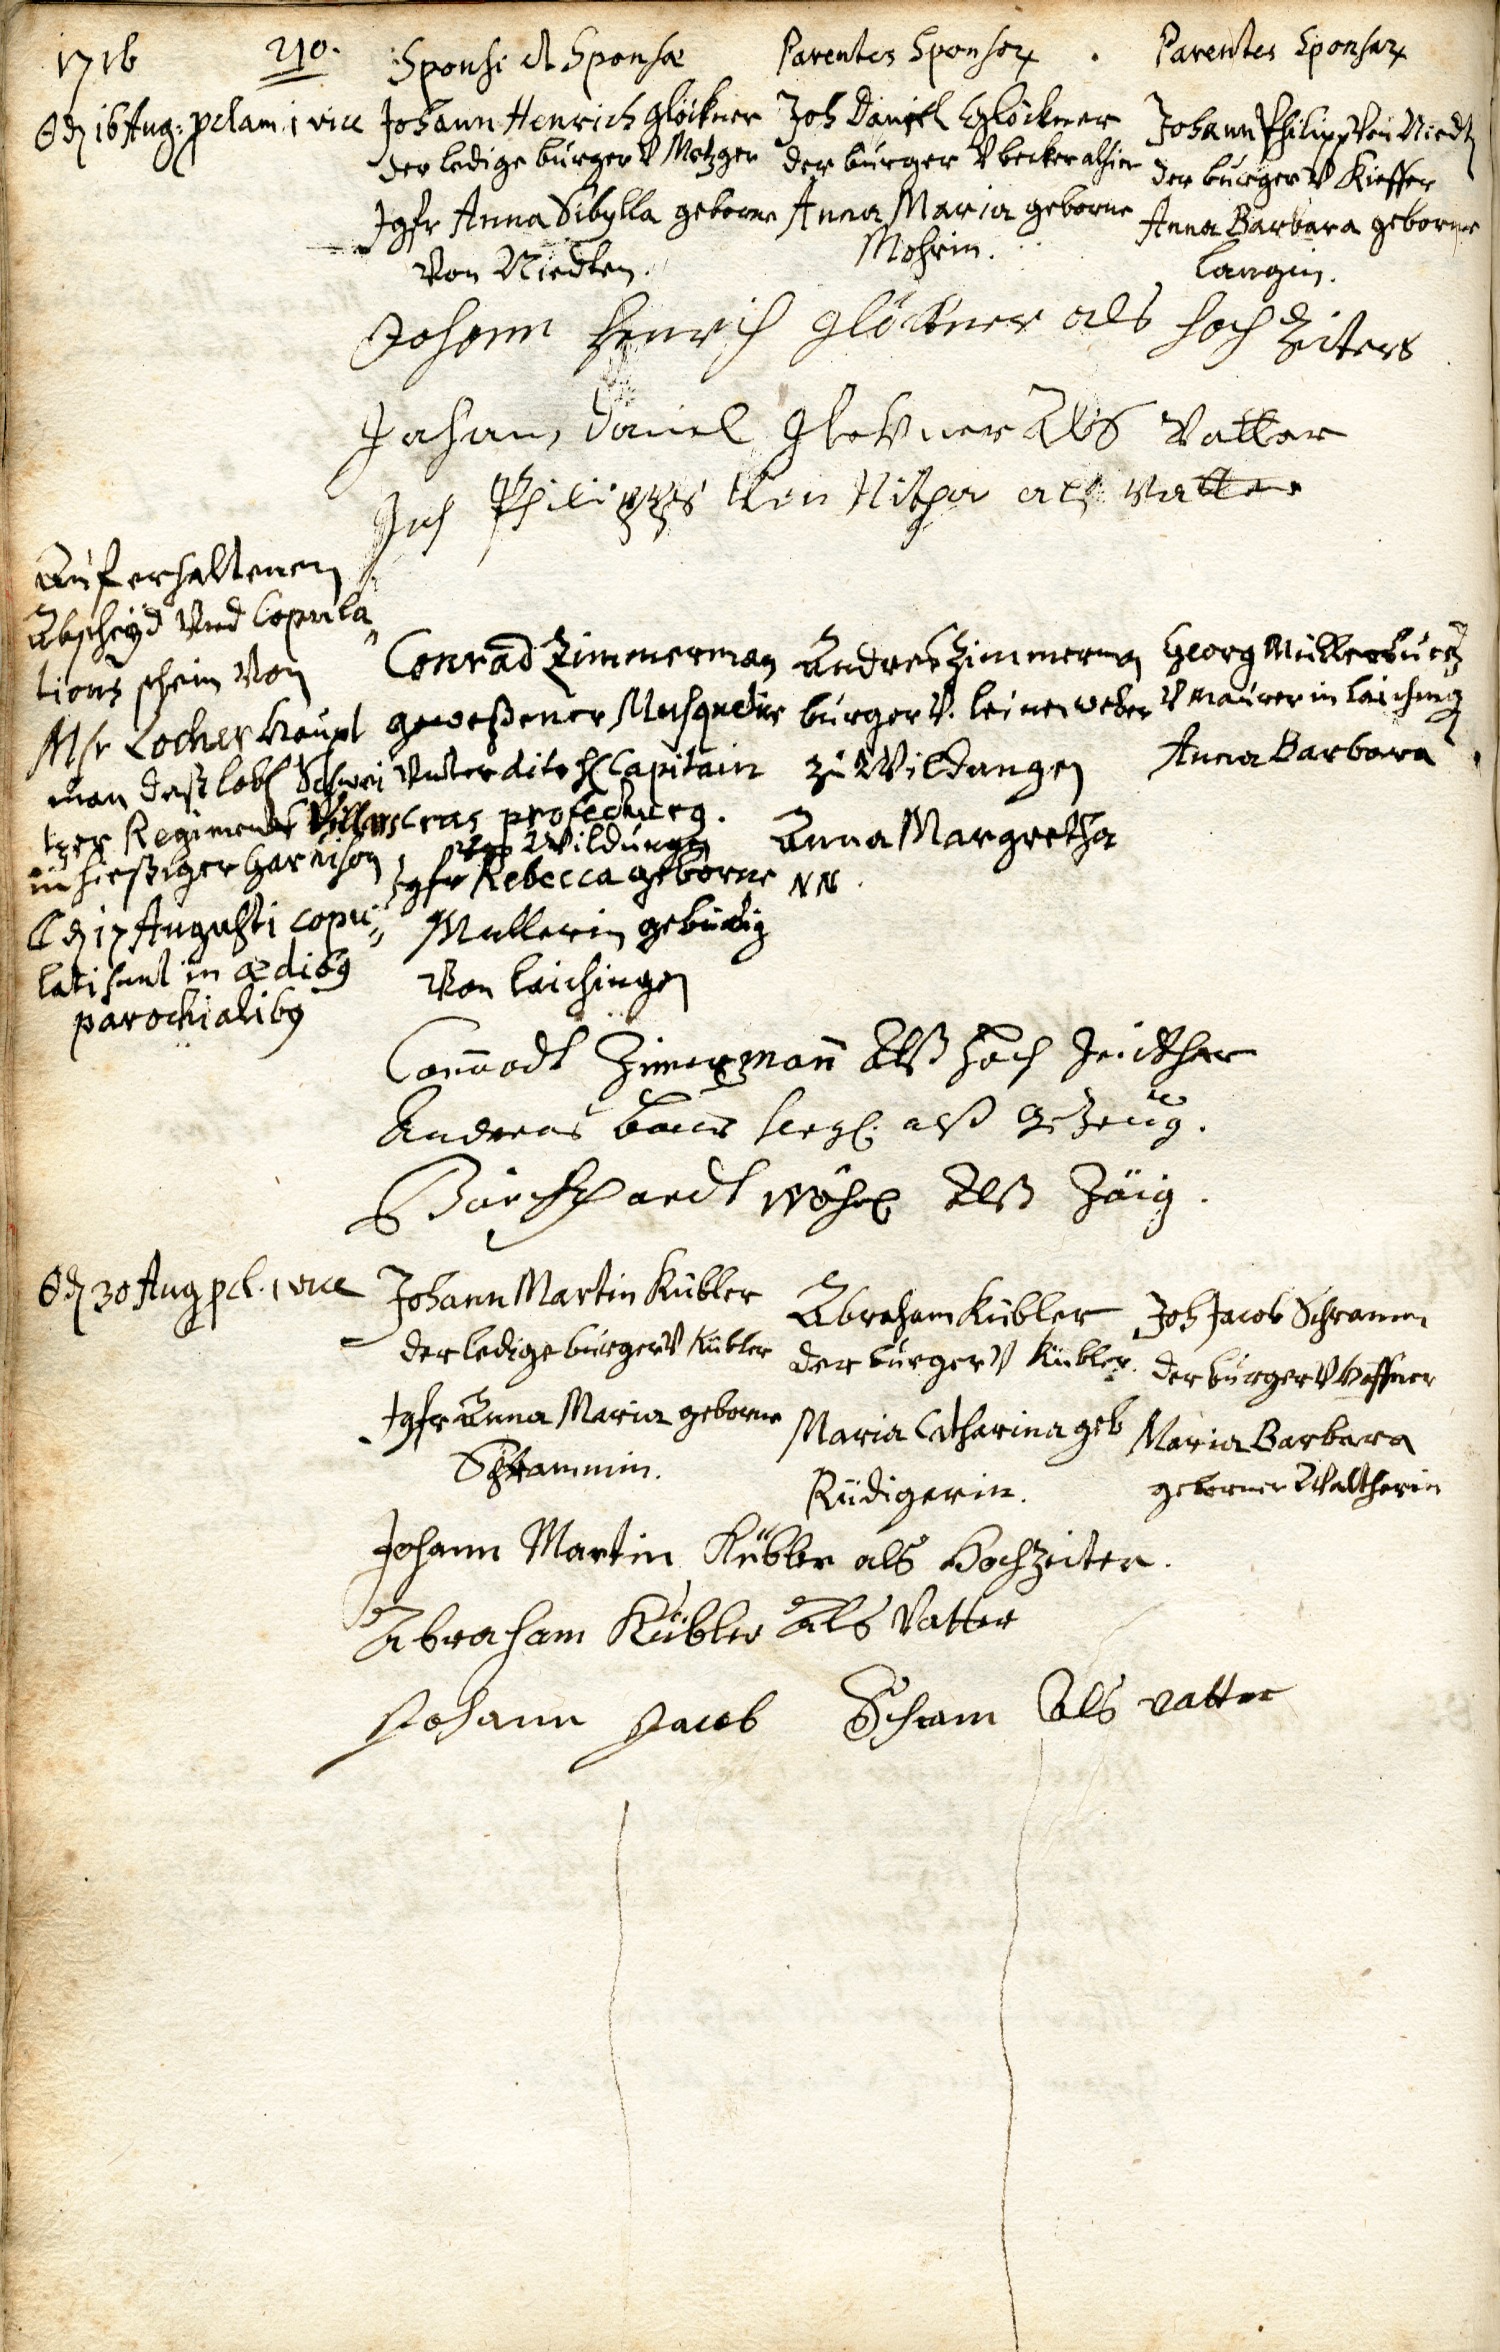 1716
210.
Sponsi et Sponsæ
Parentes Sponsor
Parentes Sponsar
d 16 Aug: pclam 1 vice
Johann Henrich Glöckner
der ledige burger V Metzger
Jgfr Anna Sibylla geborne
Von Niedten.
Joh Daniel Glöckner
der burger V becker alhier
Anna Maria geborne
Mohrin.
Johann Philipp Von Niedt
der burger V Kieffer
Anna Barbara geborne
Langin.
Johann Henrich Glöckner als hoch Zeiters
Johann Daniel Glockner Als Vatter
Joh Philipps Von als Vatter
Auf erhaltenen
Abscheyd Und Copula
tions schein Von
Msr Locher Haupt
man deß lobl Schwei
tzer Regiments Villars
in hießiger Garnison
d 17 Augusti copu
lati sunt in ædibg
parochialibg
Conrad Zimmerman
geweßener Musquetir
Unter dito H Capitain
cras profecturg.
Von Wildungen
Jgfr Rebecca geborne
Mullerin gebürtig
Von Laichingen
Andres Zimmerman
burger V. leinenweber
zu Wildungen
Anna Margretha
NN.
Georg Müller burg
V maurer in Laiching
Anna Barbara
Zimermann Alß Hoch Zeither
Andreas alß Gezeug.
Alß Zäig.
d 30 Aug pcl. 1 vice
Johann Martin Kübler
der ledige burger V Kübler
Jgfr Anna Maria geborne
Schrammin.
Abraham Kübler
der burger V Kübler.
Maria Catharina geb
Rüdigerin.
Joh Jacob Schramm
der burger V Haffner
Maria Barbara
geborner Waltherin
Johann Martin Kübler als Hochzeiter.
Abraham Kübler Als Vatter
Johann Jacob Schram Als vatter